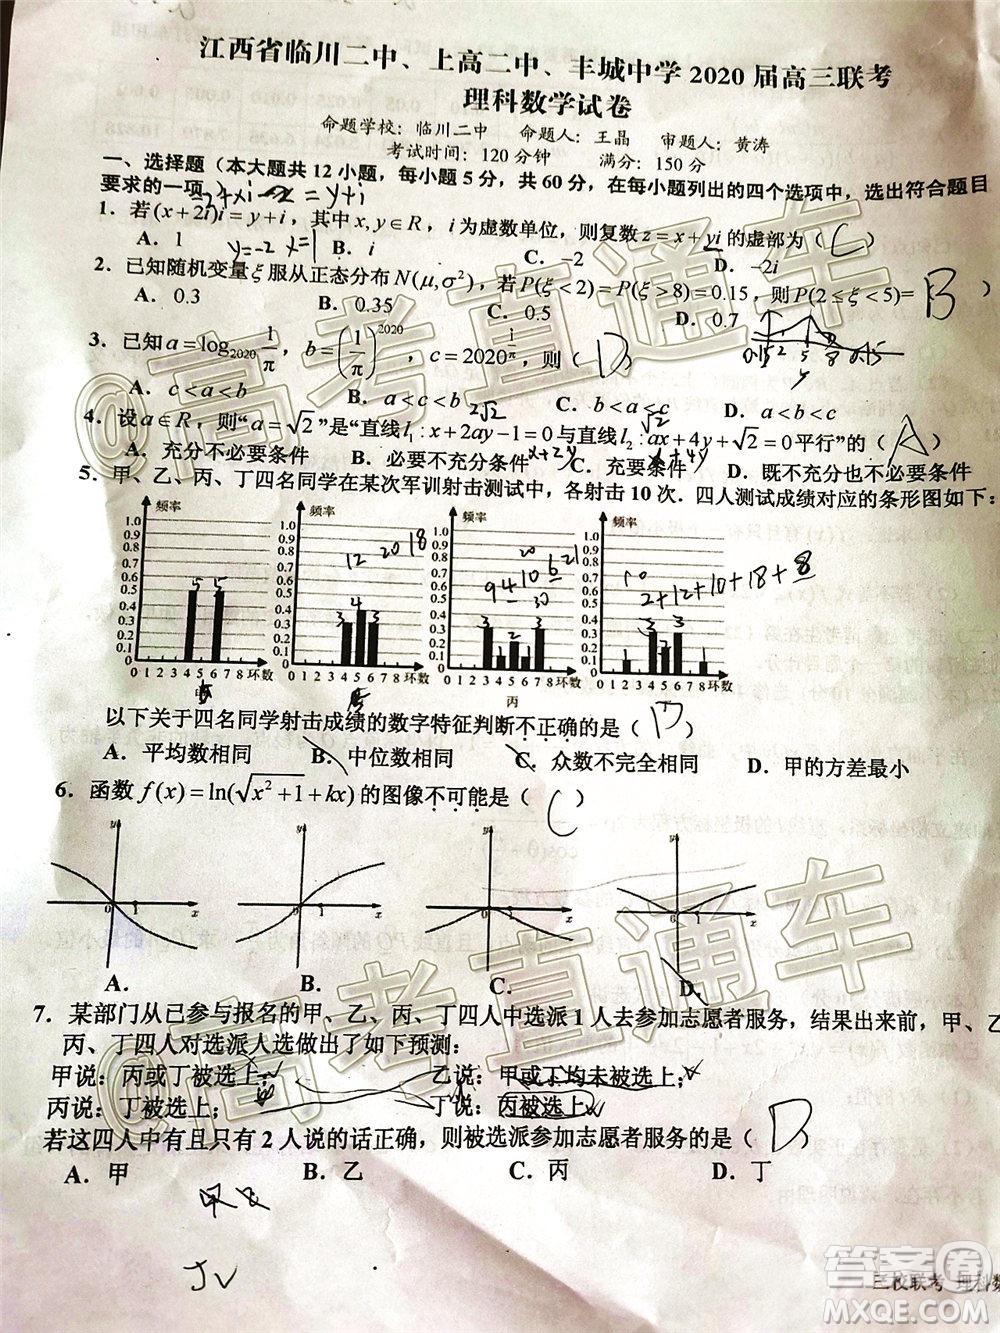 江西省临川二中、上高二中、丰城中学 2020 届高三联考
理科数学试卷
命题学校：临川二中 命题人：王晶 审题人：黄涛
考试时间：120 分钟 满分：150 分
一、选择题（本大题共 12 小题，每小题 5 分，共 60 分，在每小题列出的四个选项中，选出符合题目
要求的一项）
1. 若(x+2i)i=y+i，其中x,y∈R，i为虚数单位，则复数z=x+yi的虚部为（ C ）
y=-2 x=1
A. 1 B. i C. -2 D. -2i
2. 已知随机变量ξ服从正态分布N(μ,σ²)，若P(ξ<2)=P(ξ>8)=0.15，则P(2≤ξ<5)= B
A. 0.3 B. 0.35 C. 0.5 D. 0.7
3. 已知a=log₂₀₂₀ 1/π，b=(1/π)^2020，c=2020^(1/π)，则（ D ）
A. c<a<b B. a<c<b C. b<a<c D. a<b<c
4. 设a∈R，则“a=√2”是“直线l₁:x+2ay-1=0与直线l₂:ax+4y+√2=0平行”的（ A ）
A. 充分不必要条件 B. 必要不充分条件 C. 充要条件 D. 既不充分也不必要条件
5. 甲、乙、丙、丁四名同学在某次军训射击测试中，各射击 10 次．四人测试成绩对应的条形图如下：
频率 频率 频率 频率
1.0 1.0 1.0 1.0
0.9 0.9 0.9 0.9
0.8 0.8 0.8 0.8
0.7 0.7 0.7 0.7
0.6 0.6 0.6 0.6
0.5 0.5 0.5 0.5
0.4 0.4 0.4 0.4
0.3 0.3 0.3 0.3
0.2 0.2 0.2 0.2
0.1 0.1 0.1 0.1
2+12+10+18+8
0 1 2 3 4 5 6 7 8 环数 0 1 2 3 4 5 6 7 8 环数 0 1 2 3 4 5 6 7 8 环数 0 1 2 3 4 5 6 7 8 环数
丙
以下关于四名同学射击成绩的数字特征判断不正确的是（ D ）
A. 平均数相同 B. 中位数相同 C. 众数不完全相同 D. 甲的方差最小
6. 函数f(x)=ln(√(x²+1)+kx)的图像不可能是（ C ）
y 0 1 x y 0 1 x y 0 1 x y 0 1 x
A. B. C. D.
7. 某部门从已参与报名的甲、乙、丙、丁四人中选派 1 人去参加志愿者服务，结果出来前，甲、乙
丙、丁四人对选派人选做出了如下预测：
甲说：丙或丁被选上； 乙说：甲或丁均未被选上；
丙说：丁被选上； 丁说：丙被选上．
若这四人中有且只有 2 人说的话正确，则被选派参加志愿者服务的是（ D ）
A. 甲 B. 乙 C. 丙 D. 丁
三校联考 理科数
@高考直通车
@高考直通车
答案圈
MXQE.COM